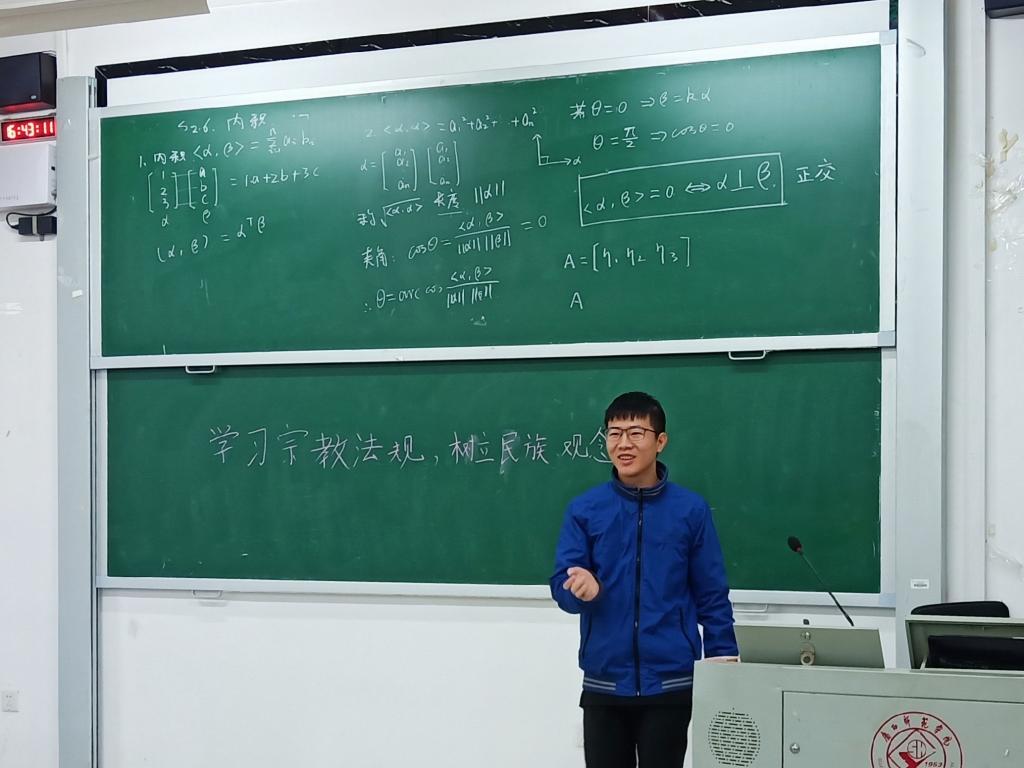 16:43:11
§2.6. 内积
1. 内积 <α, β> = Σ aᵢbᵢ
[1 2 3] [a b c] = 1·a+2b+3c
α β
(α, β) = αᵀβ
2. <α, α> = a₁²+a₂²+…+aₙ²
α = [a₁ a₂ … aₙ] [a₁ a₂ … aₙ]
称 √<α, α> 长度 ||α||
夹角: cosθ = <α, β> / ||α|| ||β|| = 0
∴ θ = arc cos <α, β> / ||α|| ||β||
若 θ = 0 ⇒ β = kα
θ = π/2 ⇒ cosθ = 0
α
<α, β> = 0 ⇔ α⊥β. 正交
A = [η₁ η₂ η₃]
A
学习宗教法规，树立民族观念
1953